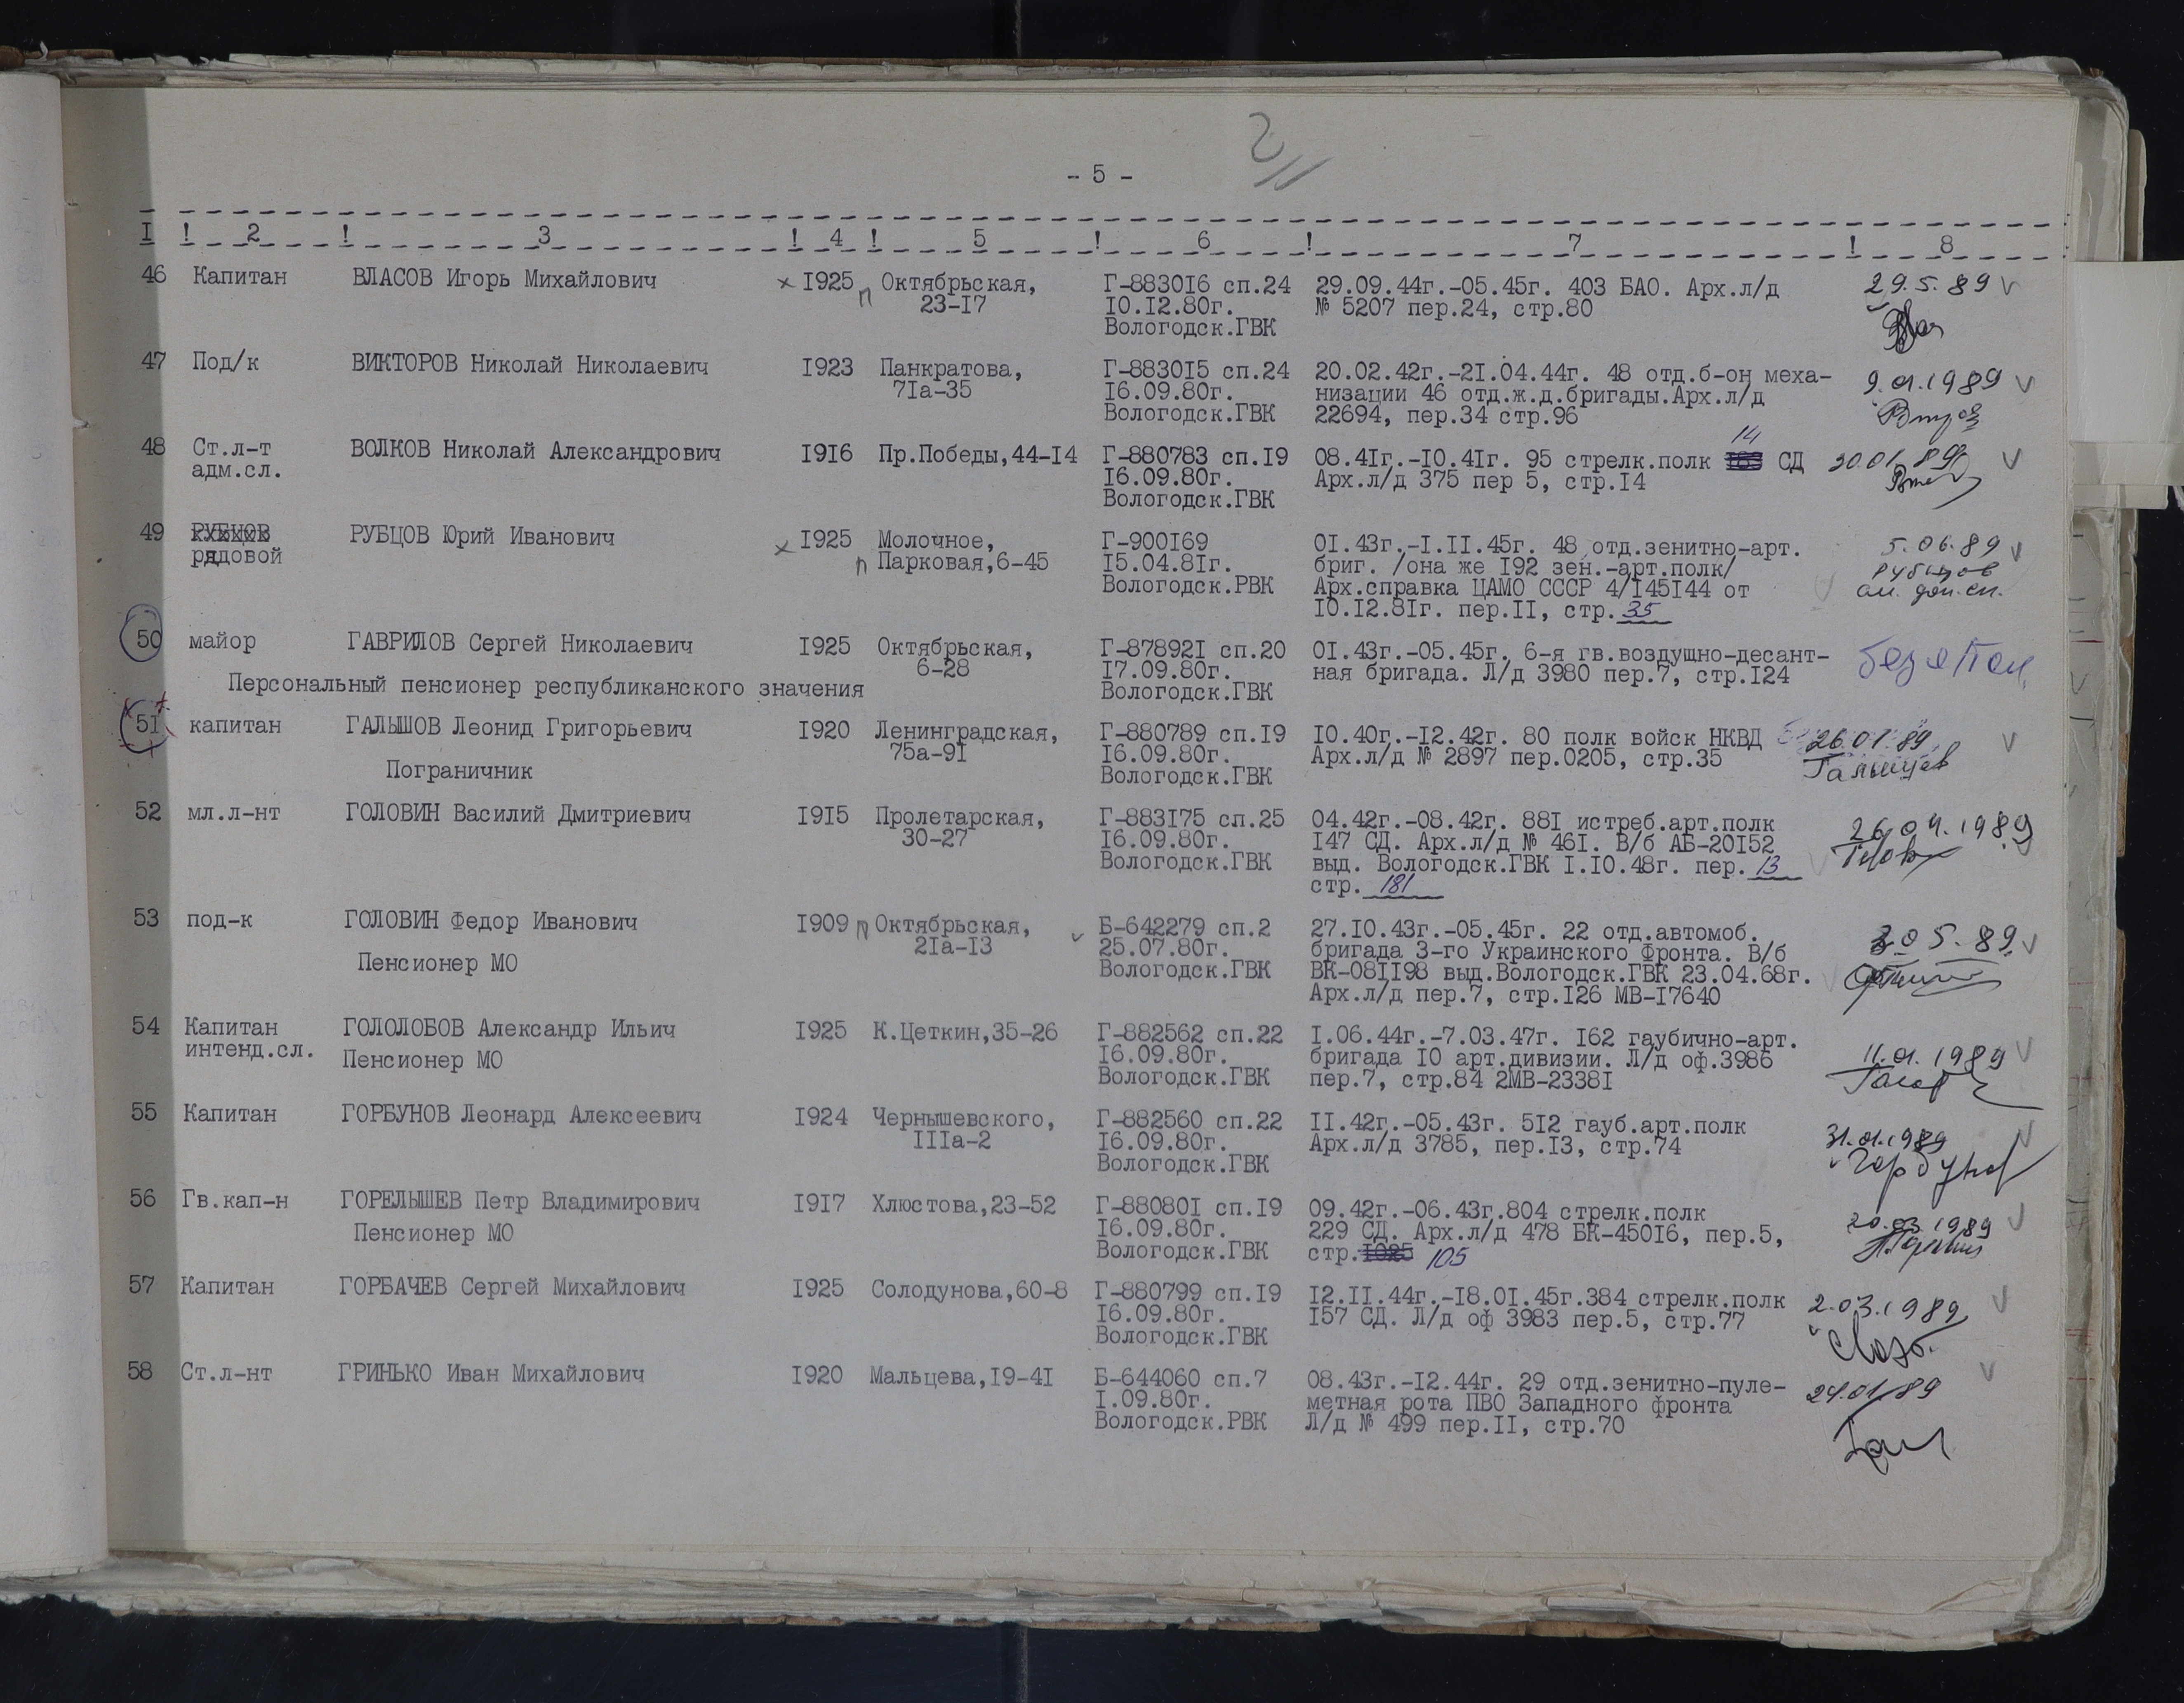 - 5 -
I ! 2 ! 3 ! 4 ! 5 ! 6 ! 7 ! 8
46 Капитан ВЛАСОВ Игорь Михайлович x I925 п Октябрьская, Г-8830I6 сп.24 29.09.44г.-05.45г. 403 БАО. Арх.л/д 29.5.89 V
23-I7 I0.I2.80г. № 5207 пер.24, стр.80
Вологодск.ГВК
47 Под/к ВИКТОРОВ Николай Николаевич I923 Панкратова, Г-8830I5 сп.24 20.02.42г.-2I.04.44г. 48 отд.б-он меха- 9.01.1989 V
7Iа-35 I6.09.80г. низации 46 отд.ж.д.бригады.Арх.л/д
Вологодск.ГВК 22694, пер.34 стр.96
14
48 Ст.л-т ВОЛКОВ Николай Александрович I9I6 Пр.Победы,44-I4 Г-880783 сп.I9 08.4Iг.-I0.4Iг. 95 стрелк.полк СД 30.01.89 V
адм.сл. I6.09.80г. Арх.л/д 375 пер 5, стр.I4
Вологодск.ГВК
49 РУБЦОВ РУБЦОВ Юрий Иванович x I925 Молочное, Г-900I69 0I.43г.-I.II.45г. 48 отд.зенитно-арт. 5.06.89 V
рядовой п Парковая,6-45 I5.04.8Iг. бриг. /она же I92 зен.-арт.полк/ Рубцов
Вологодск.РВК Арх.справка ЦАМО СССР 4/I45I44 от см. доп.сп.
I0.I2.8Iг. пер.II, стр. 35
50 майор ГАВРИЛОВ Сергей Николаевич I925 Октябрьская, Г-87892I сп.20 0I.43г.-05.45г. 6-я гв.воздушно-десант-
6-28 I7.09.80г. ная бригада. Л/д 3980 пер.7, стр.I24
Персональный пенсионер республиканского значения Вологодск.ГВК
5I капитан ГАЛЫШОВ Леонид Григорьевич I920 Ленинградская, Г-880789 сп.I9 I0.40г.-I2.42г. 80 полк войск НКВД 26.01.89 V
75а-9I I6.09.80г. Арх.л/д № 2897 пер.0205, стр.35
Пограничник Вологодск.ГВК
52 мл.л-нт ГОЛОВИН Василий Дмитриевич I9I5 Пролетарская, Г-883I75 сп.25 04.42г.-08.42г. 88I истреб.арт.полк 26.04.1989
30-27 I6.09.80г. I47 СД. Арх.л/д № 46I. В/б АБ-20I52
Вологодск.ГВК выд. Вологодск.ГВК I.I0.48г. пер. 13
стр. 181
53 под-к ГОЛОВИН Федор Иванович I909 п Октябрьская, V Б-642279 сп.2 27.I0.43г.-05.45г. 22 отд.автомоб. 05.89. V
2Iа-I3 25.07.80г. бригада 3-го Украинского Фронта. В/б
Пенсионер МО Вологодск.ГВК ВК-08II98 выд.Вологодск.ГВК 23.04.68г.
Арх.л/д пер.7, стр.I26 МВ-I7640
54 Капитан ГОЛОЛОБОВ Александр Ильич I925 К.Цеткин,35-26 Г-882562 сп.22 I.06.44г.-7.03.47г. I62 гаубично-арт. 11.01.1989 V
интенд.сл. Пенсионер МО I6.09.80г. бригада I0 арт.дивизии. Л/д оф.3986
Вологодск.ГВК пер.7, стр.84 2МВ-2338I
55 Капитан ГОРБУНОВ Леонард Алексеевич I924 Чернышевского, Г-882560 сп.22 II.42г.-05.43г. 5I2 гауб.арт.полк 31.01.1989 V
IIIа-2 I6.09.80г. Арх.л/д 3785, пер.I3, стр.74 Горбунов
Вологодск.ГВК
56 Гв.кап-н ГОРЕЛЫШЕВ Петр Владимирович I9I7 Хлюстова,23-52 Г-88080I сп.I9 09.42г.-06.43г.804 стрелк.полк 20.03.1989 V
Пенсионер МО I6.09.80г. 229 СД. Арх.л/д 478 БК-450I6, пер.5,
Вологодск.ГВК стр.I025 105
57 Капитан ГОРБАЧЕВ Сергей Михайлович I925 Солодунова,60-8 Г-880799 сп.I9 I2.II.44г.-I8.0I.45г.384 стрелк.полк 2.03.1989 V
I6.09.80г. I57 СД. Л/д оф 3983 пер.5, стр.77
Вологодск.ГВК
58 Ст.л-нт ГРИНЬКО Иван Михайлович I920 Мальцева,I9-4I Б-644060 сп.7 08.43г.-I2.44г. 29 отд.зенитно-пуле- 24.01.89 V
I.09.80г. метная рота ПВО Западного фронта
Вологодск.РВК Л/д № 499 пер.II, стр.70